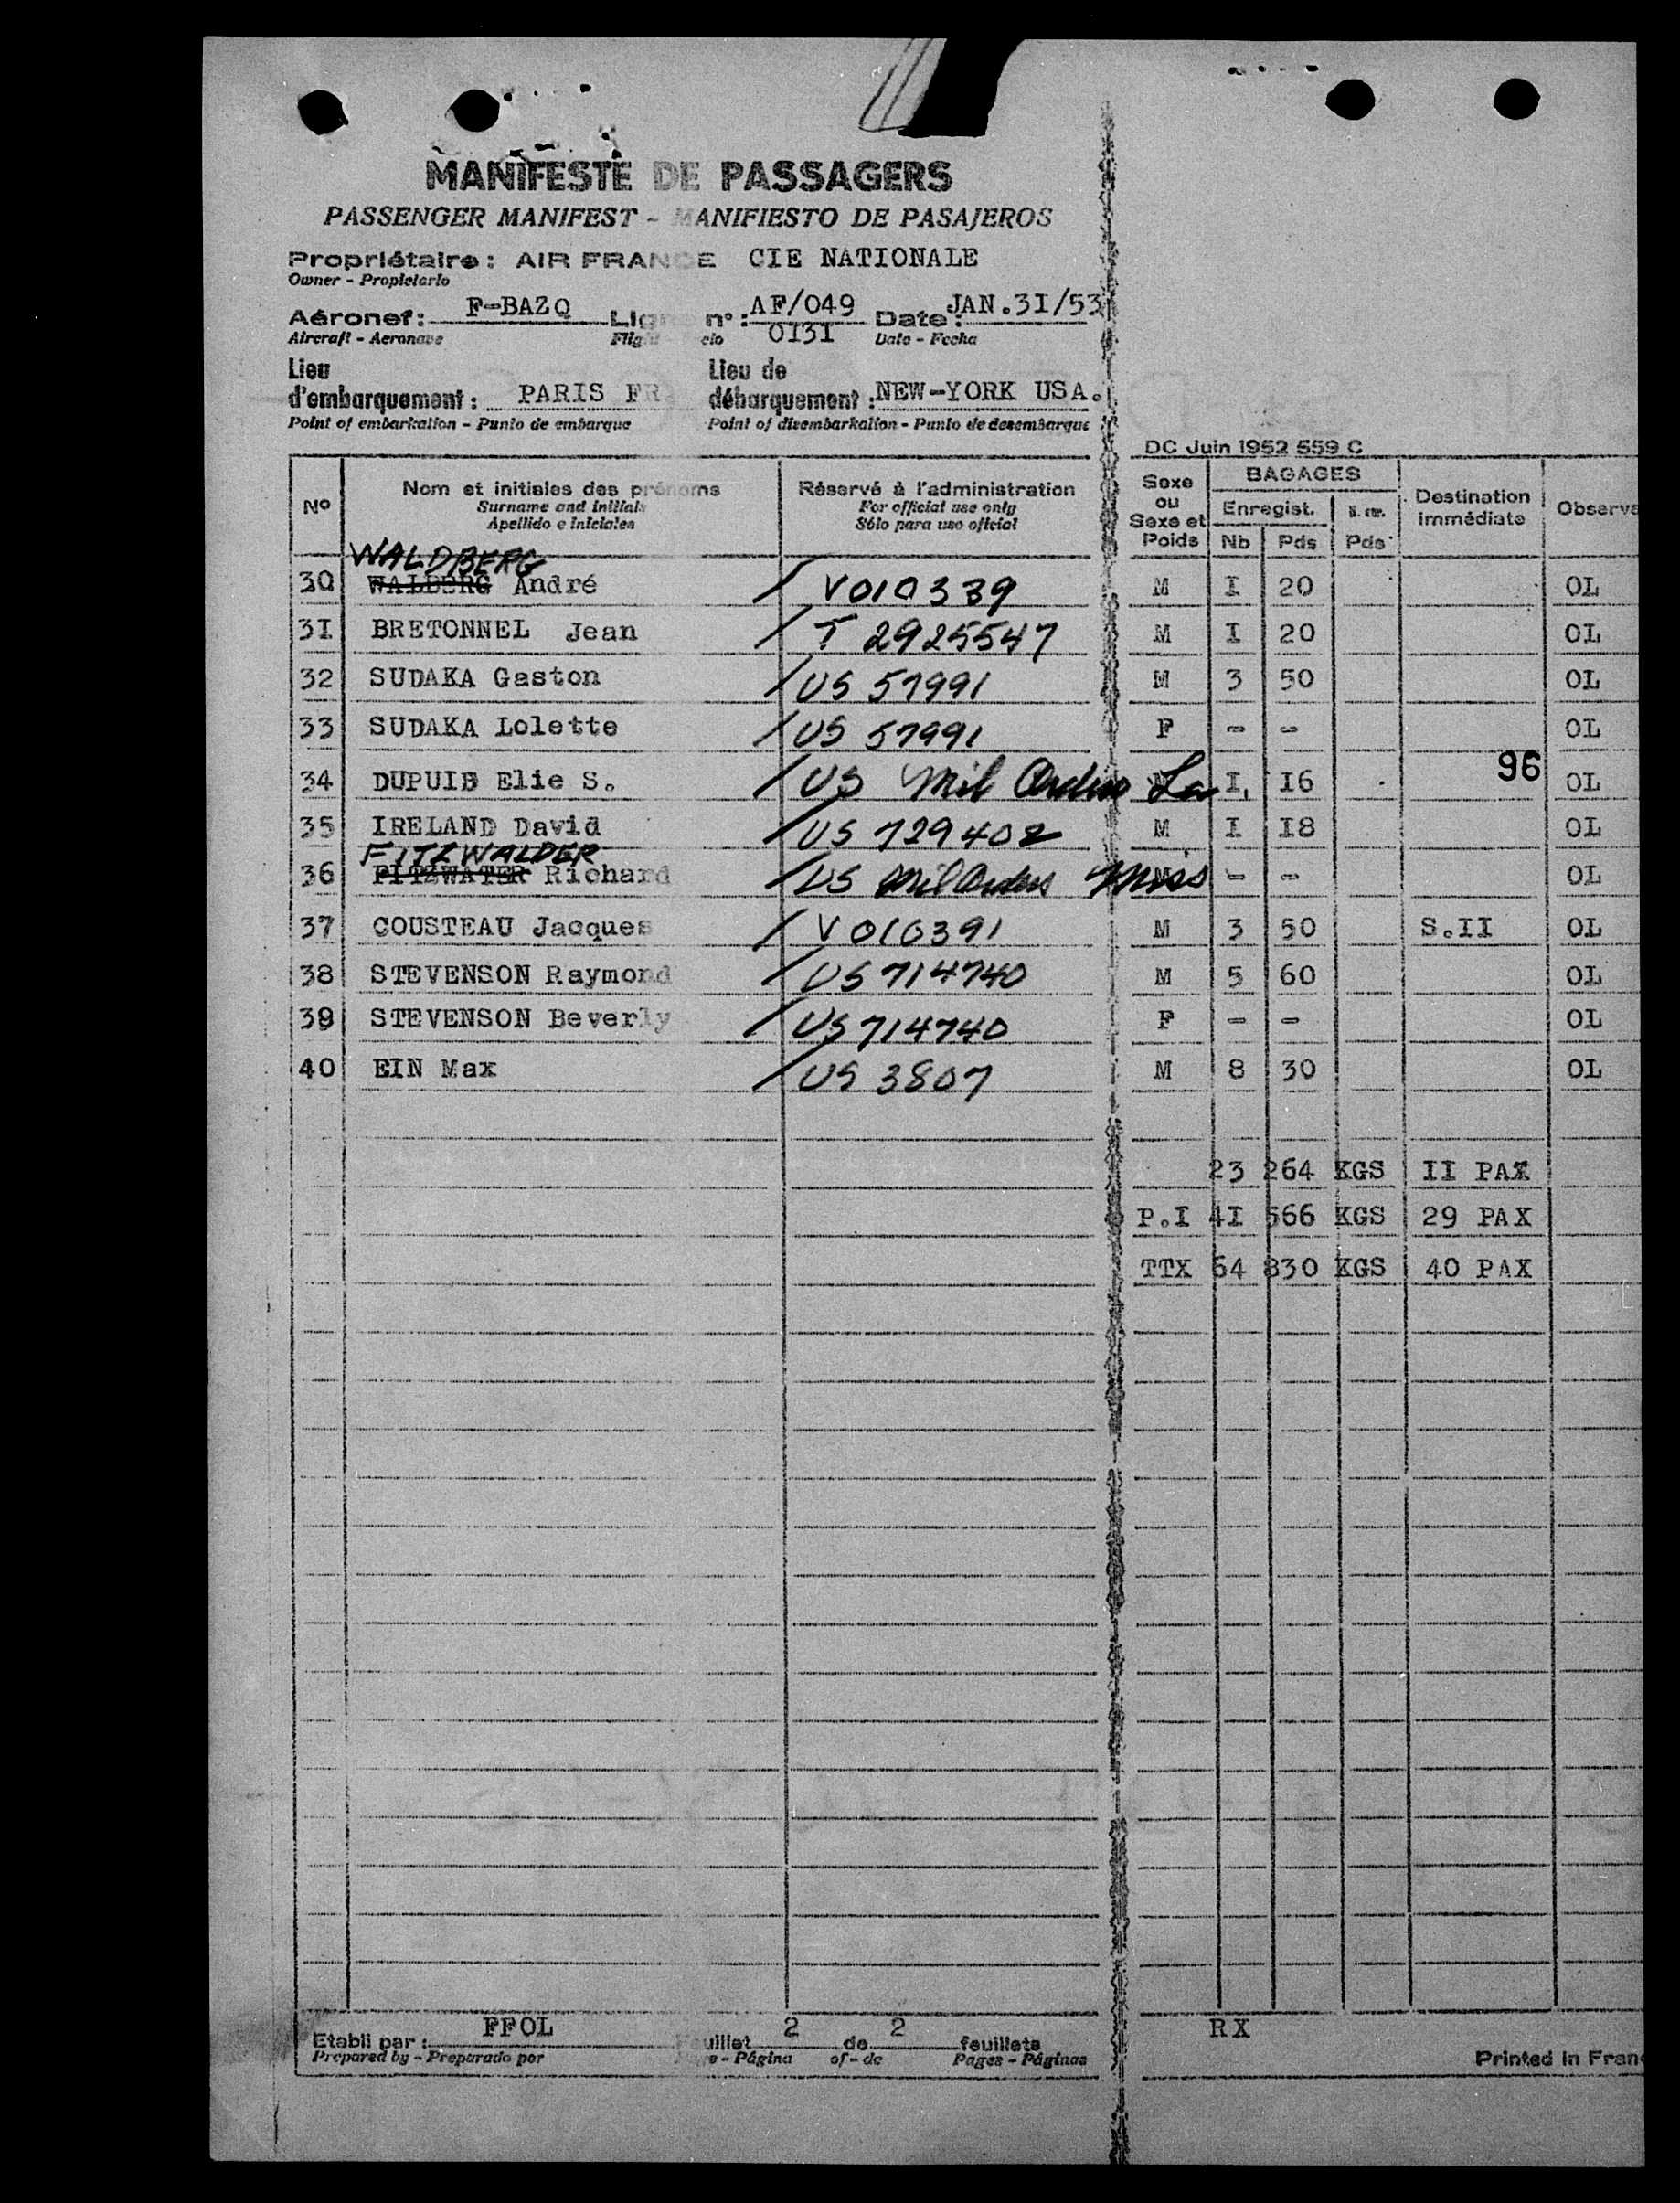 MANIFESTE DE PASSAGERS
PASSENGER MANIFEST - MANIFIESTO DE PASAJEROS
Propriétaire : AIR FRANCE CIE NATIONALE
Owner - Propietario
Aéronef : F-BAZQ Ligne n° : AF/049 Date : JAN.3I/53
0I3I
Aircraft - Aeronave Flight Date - Fecha
Lieu d'embarquement : PARIS FR Lieu de débarquement : NEW-YORK USA.
Point of embarkation - Punto de embarque Point of disembarkation - Punto de desembarque
DC Juin 1952 559 C
N° Nom et initiales des prénoms Réservé à l'administration Sexe ou Sexe et Poids BAGAGES Destination immédiate Observa
Surname and initials For official use only Enregist.
Apellido e iniciales Sólo para uso oficial Nb Pds Pds
WALDBERG
30 WALBERG André / V010339 M I 20 OL
3I BRETONNEL Jean / T 2925547 M I 20 OL
32 SUDAKA Gaston / US 57991 M 3 50 OL
33 SUDAKA Lolette / US 57991 F - - OL
96
34 DUPUIS Elie S. / US Mil Orders La I 16 OL
35 IRELAND David / US 729402 M I I8 OL
FITZWALDER
36 FITZWATER Richard / US Mil Orders Miss - - OL
37 COUSTEAU Jacques / V 010391 M 3 50 S.II OL
38 STEVENSON Raymond / US 714740 M 5 60 OL
39 STEVENSON Beverly / US 714740 F - - OL
40 EIN Max / US 3807 M 8 30 OL
23 264 KGS II PAX
P.I 4I 566 KGS 29 PAX
TTX 64 830 KGS 40 PAX
Etabli par : FFOL Feuillet 2 de 2 feuillets RX
Prepared by - Preparado por Page - Página of - de Pages - Páginas Printed in Fran